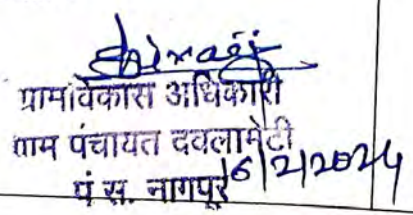 ग्रामविकास अधिकारी
ग्राम पंचायत दवलामेटी
पं स. नागपूर 6/2/2024